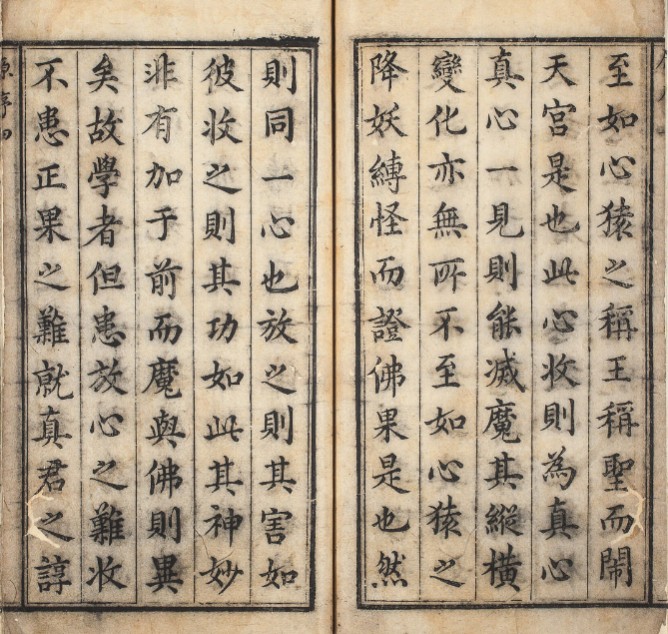 至如心猿之稱王稱聖而鬧
天宮是也此心收則為真心
真心一見則能滅魔其縱橫
變化亦無所不至如心猿之
降妖縛怪而證佛果是也然
則同一心也放之則其害如
彼收之則其功如此其神妙
非有加于前而魔與佛則異
矣故學者但患放心之難收
不患正果之難就真君之諄